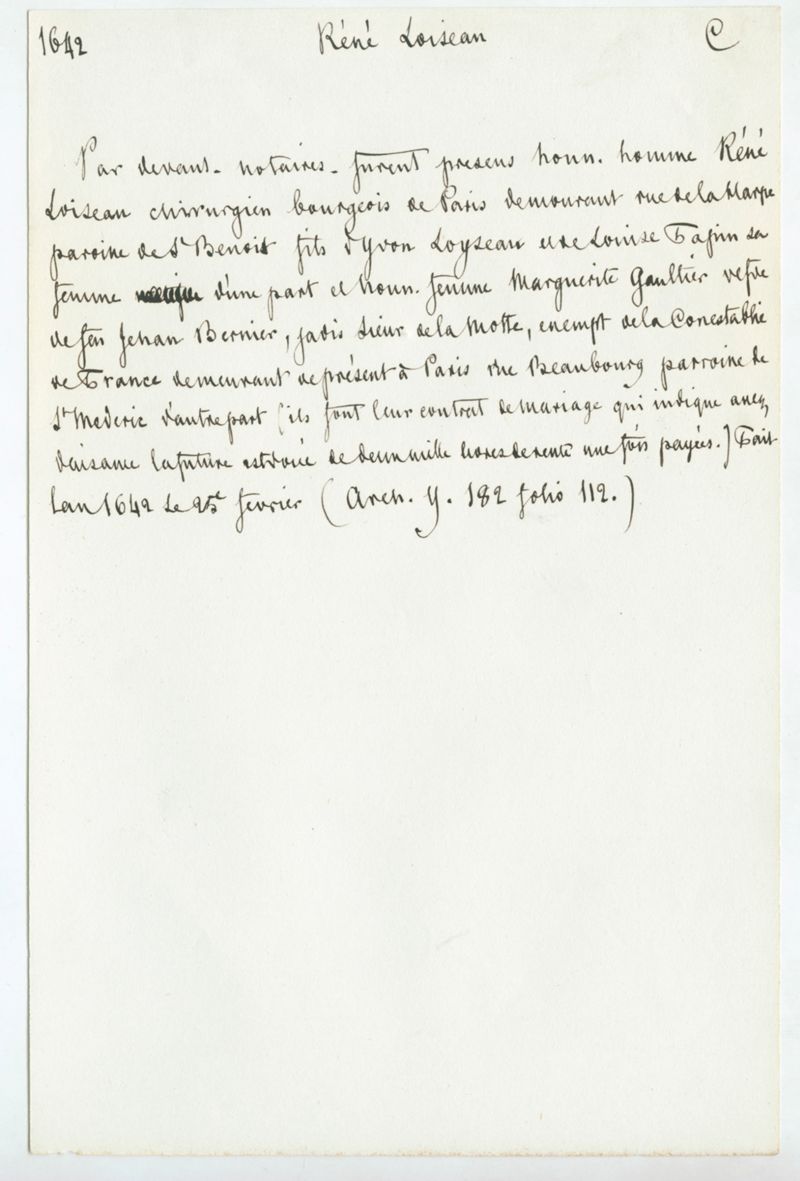 1642 Réné Loiseau C
Par devant. notaires. furent presens honn. homme Réné
Loiseau chirurgien bourgeois de Paris demourant rue de la Harpe
paroisse de St Benoist fils d'Yvon Loyseau et de Louise Tapin sa
femme d'une part et honn. femme Marguerite Gaultier vefve
de feu Jehan Bernier, jadis Sieur de la Motte, exempt de la Conestablie
de France demeurant de présent à Paris rue Beaubourg parroisse de
St Mederic d'autre part (ils font leur contrat de mariage qui indique assez
d'aisance la future est douée de deux mille livres de rente une fois payées.) Fait
l'an 1642 le 25e fevrier (Arch. Y. 182 folio 112.)